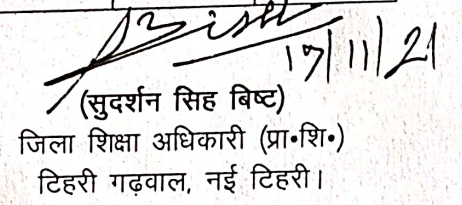 17/11/21
(सुदर्शन सिह बिष्ट)
जिला शिक्षा अधिकारी (प्रा॰शि॰)
टिहरी गढ़वाल, नई टिहरी।